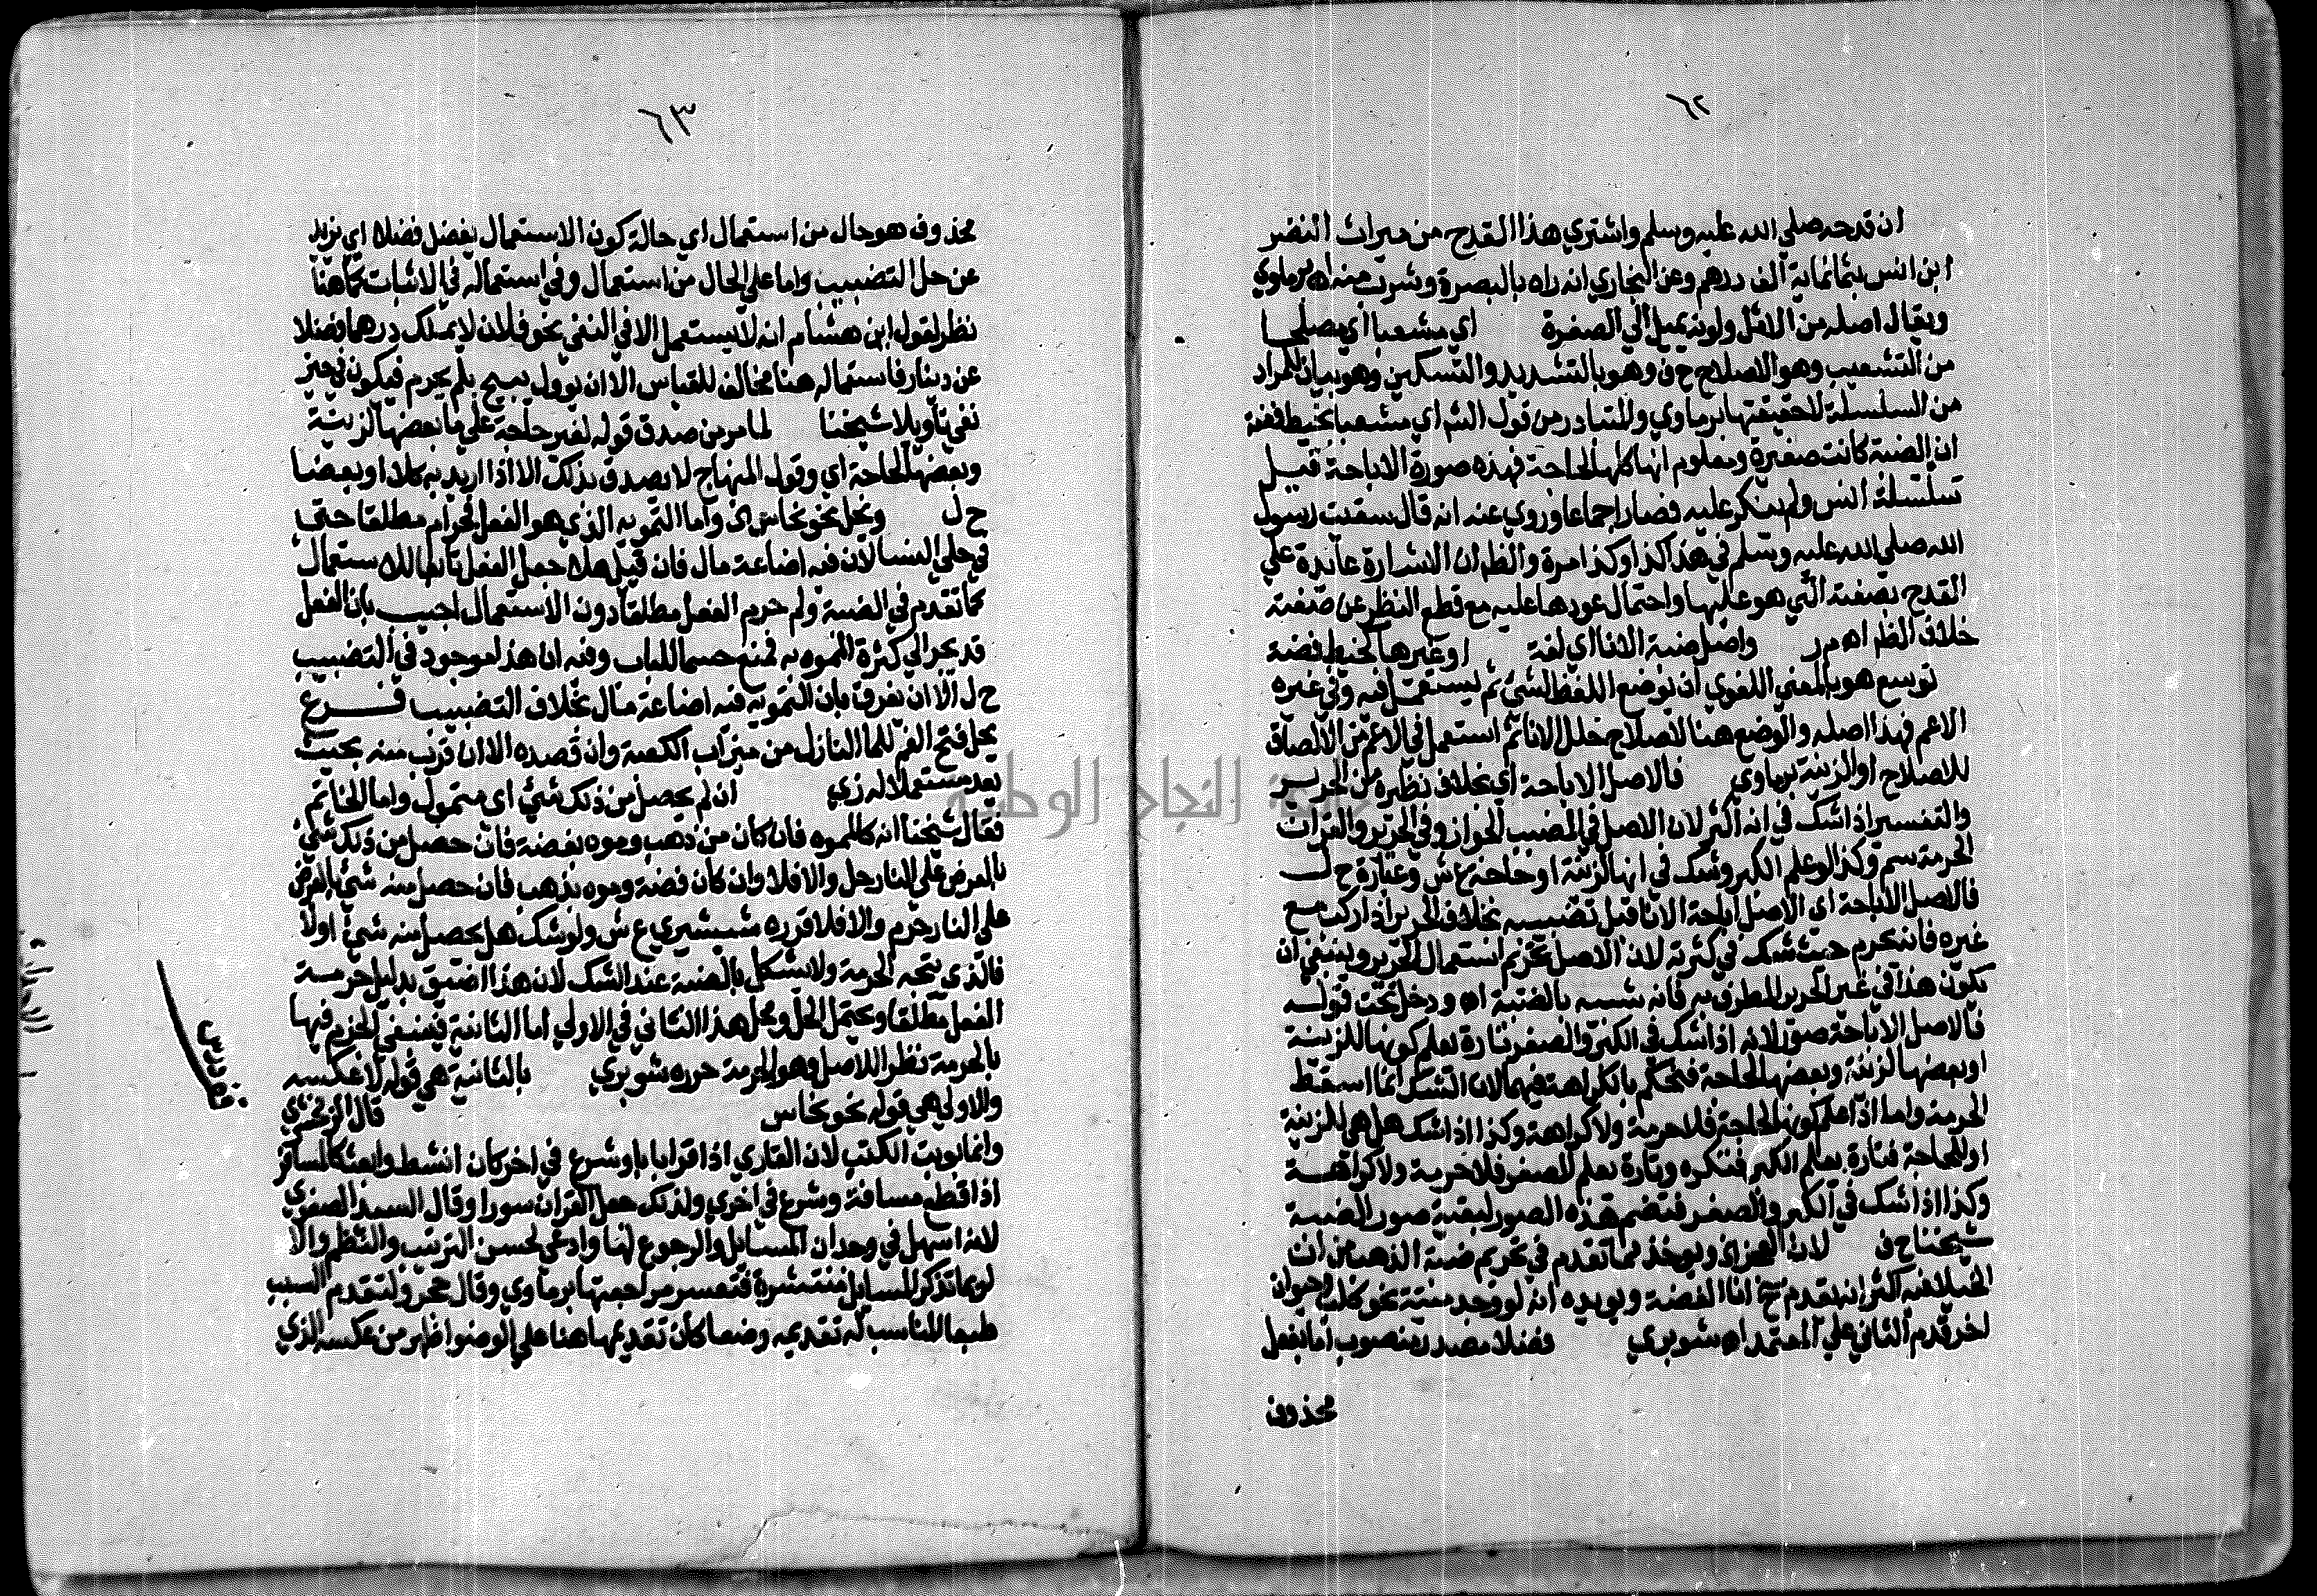 ٦٢
ان قدحه صلي الله عليه وسلم واشتري هذا القدح من ميراث النضر
ابن انس بثمانماية الف درهم وعن البخاري انه راه بالبصرة وشرب منه اه برماوي
ويقال اصله من الاثل ولونه يميل الي الصفرة اي مشعبا اي مصلحا
من التشعيب وهو الاصلاح ح ف وهو بالتشديد والتسكين وهو بيان للمراد
من السلسلة لحقيقتها برماوي والمتبادر من قول الش اي مشعبا بخيط فضة
ان الضبة كانت صغيرة ومعلوم انها كلها لحاجة فهذه صورة الاباحة قيل
سلسلة انس ولم ينكر عليه فصار اجماعا وروي عنه انه قال سقيت رسول
الله صلي الله عليه وسلم في هذا كذا وكذا مرة والظ ان الاشارة عائدة علي
القدح بصفته التي هو عليها واحتمال عودها عليه مع قطع النظر عن صفته
خلاف الظ اه م ر واصل ضبة الانا اي لغة او غيرها كخيط فضة
توسع هو بالمعني اللغوي ان يوضع اللفظ لشئ ثم يستعمل فيه وفي غيره
الاعم فهذا اصله والوضع هنا لاصلاح خلل الانا ثم استعمل في الاعم من الالصاق
للاصلاح او الزينة برماوي فالاصل الاباحة اي بخلاف نظيره من الحرير
والتفسير اذا شك في انه اكثر لان الاصل في المضبب الجواز وفي الحرير والقران
الحرمة سم وكذا لو علم الكبر وشك في انها لزينة او حاجة ع ش وعبارة ح ل
فالاصل الاباحة اي الاصل اباحة الانا قبل تضبيبه بخلاف الحرير اذا ركب مع
غيره فانه يحرم حيث شك في كثرته لان الاصل تحريم استعمال الحرير وينبغي ان
يكون هذا في غير الحرير المطرف به فانه شبيه بالضبة اه ودخل تحت قوله
فالاصل الاباحة صور لانه اذا شك في الكبر والصغر فتارة يعلم كونها للزينة
او بعضها لزينة وبعضها لحاجة فنحكم بالكراهة فيهما لان الشك انما اسقط
الحرمة واما اذا علم كونها لحاجة فلا حرمة ولا كراهة وكذا اذا شك هل هي للزينة
او للحاجة فتارة يعلم الكبر فتكره وتارة يعلم الصغر فلا حرمة ولا كراهة
وكذا اذا شك في الكبر والصغر فتضم هذه الصور لبقية صور الضبة
شيخنا ح ف لان الخيلا ويوخذ مما تقدم في تحريم ضبة الذهب من ان
الخيلا فيه اكثر انه يقدم ح انا الفضة ويويده انه لو وجد ميتة نحو كلب وحيوان
اخر قدم الثاني علي المعتمد اه شوبري وفضلا مصدر منصوب اما بفعل
محذوف
٦٣
محذوف هو حال من استعمال اي حالة كون الاستعمال يفضل فضلا اي يزيد
عن حل التضبيب واما علي الحال من استعمال وفي استعماله في الاثبات كما هنا
نظر لقول ابن هشام انه لا يستعمل الا في النفي نحو فلان لا يملك درهما فضلا
عن دينار فاستعماله هنا مخالف للقياس الا ان يوول يبيح بلم يحرم فيكون في حيز
نفي تاويلا شيخنا لما مر من صدق قوله لغير حاجة علي ما بعضها لزينة
وبعضها لحاجة اي وقول المنهاج لا يصدق بذلك الا اذا اريد به كلا او بعضا
ح ل وتحل نحو نحاس اي واما التمويه الذي هو الفعل فحرام مطلقا حتي
في حلي النسا لان فيه اضاعة مال فان قيل هلا جعل الفعل تابعا للاستعمال
كما تقدم في الضبة ولم حرم الفعل مطلقا دون الاستعمال اجيب بان الفعل
قد يجر الي كثرة المموه به فمنع حسما للباب وفيه ان هذا موجود في التضبيب
ح ل الا ان يفرق بان التمويه فيه اضاعة مال بخلاف التضبيب فرع
يحل فتح الفم للما النازل من ميزاب الكعبة وان قصده الا ان قرب منه بحيث
يعد مستعملا له زي ان لم يحصل من ذلك شئ اي متمول واما الخاتم
فقال شيخنا انه كالمموه فان كان من ذهب وموه بفضة فان حصل من ذلك شئ
بالعرض علي النار حل والا فلا وان كان فضة وموه بذهب فان حصل منه شئ بالعرض
علي النار حرم والا فلا قرره شبشيري ع ش ولو شك هل يحصل منه شئ اولا
فالذي يتجه الحرمة ولا يشكل بالضبة عند الشك لان هذا اضيق بدليل حرمة
الفعل مطلقا ويحتمل الحل ومحل هذا الثاني في الاولي اما الثانية فينبغي الجزم فيها
بالحرمة نظرا للاصل وهو الحرمة حرره شوبري بالثانية هي قوله لا عكسه
والاولي هي قوله نحو نحاس قال الزمخشري
وانما بوبت الكتب لان القاري اذا قرا بابا وشرع في اخر كان انشط وابعث كالمسافر
اذا قطع مسافة وشرع في اخري ولذلك جعل القران سورا وقال السيد الصفوي
لانه اسهل في وجدان المسايل والرجوع لها وادعي لحسن الترتيب والنظم والا
لربما تذكر المسايل منتشرة فتعسر مراجعتها برماوي وقال حجر ولتقدم السبب
طبعا المناسب له تقديمه وضعا كان تقديمها هنا علي الوضوا ظهر من عكسه الذي